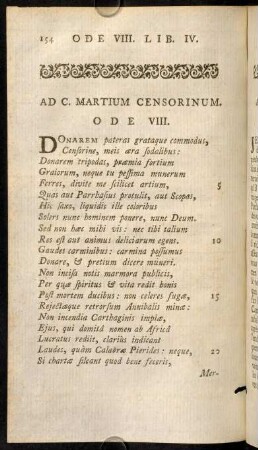 154 ODE VIII. LIB. IV.
AD C. MARTIUM CENSORINUM.
ODE VIII.
DONAREM pateras grataque commodus,
Censorine, meis æra sodalibus:
Donarem tripodas, præmia fortium
Graiorum, neque tu pessima munerum
Ferres, divite me scilicet artium, 5
Quas aut Parrhasius protulit, aut Scopas,
Hic saxo, liquidis ille coloribus
Solers nunc hominem ponere, nunc Deum.
Sed non hæc mihi vis: nec tibi talium
Res est aut animus deliciarum egens. 10
Gaudes carminibus: carmina possumus
Donare, & pretium dicere muneri.
Non incisa notis marmora publicis,
Per quæ spiritus & vita redit bonis
Post mortem ducibus: non celeres fugæ, 15
Rejectæque retrorsum Annibalis minæ:
Non incendia Carthaginis impiæ,
Ejus, qui domitâ nomen ab Africâ
Lucratus rediit, clariùs indicant
Laudes, quàm Calabræ Pierides: neque, 20
Si chartæ sileant quod bene feceris,
Mer-